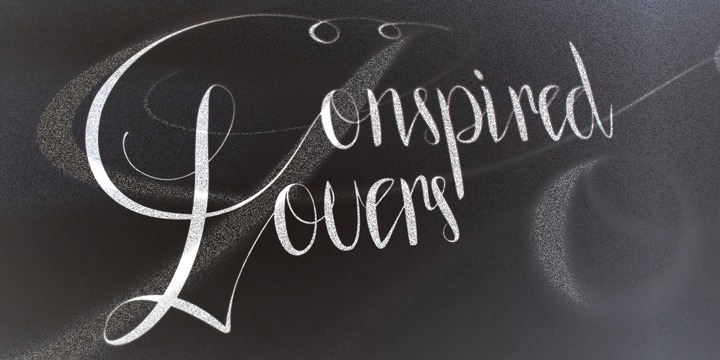 Conspired
Lovers